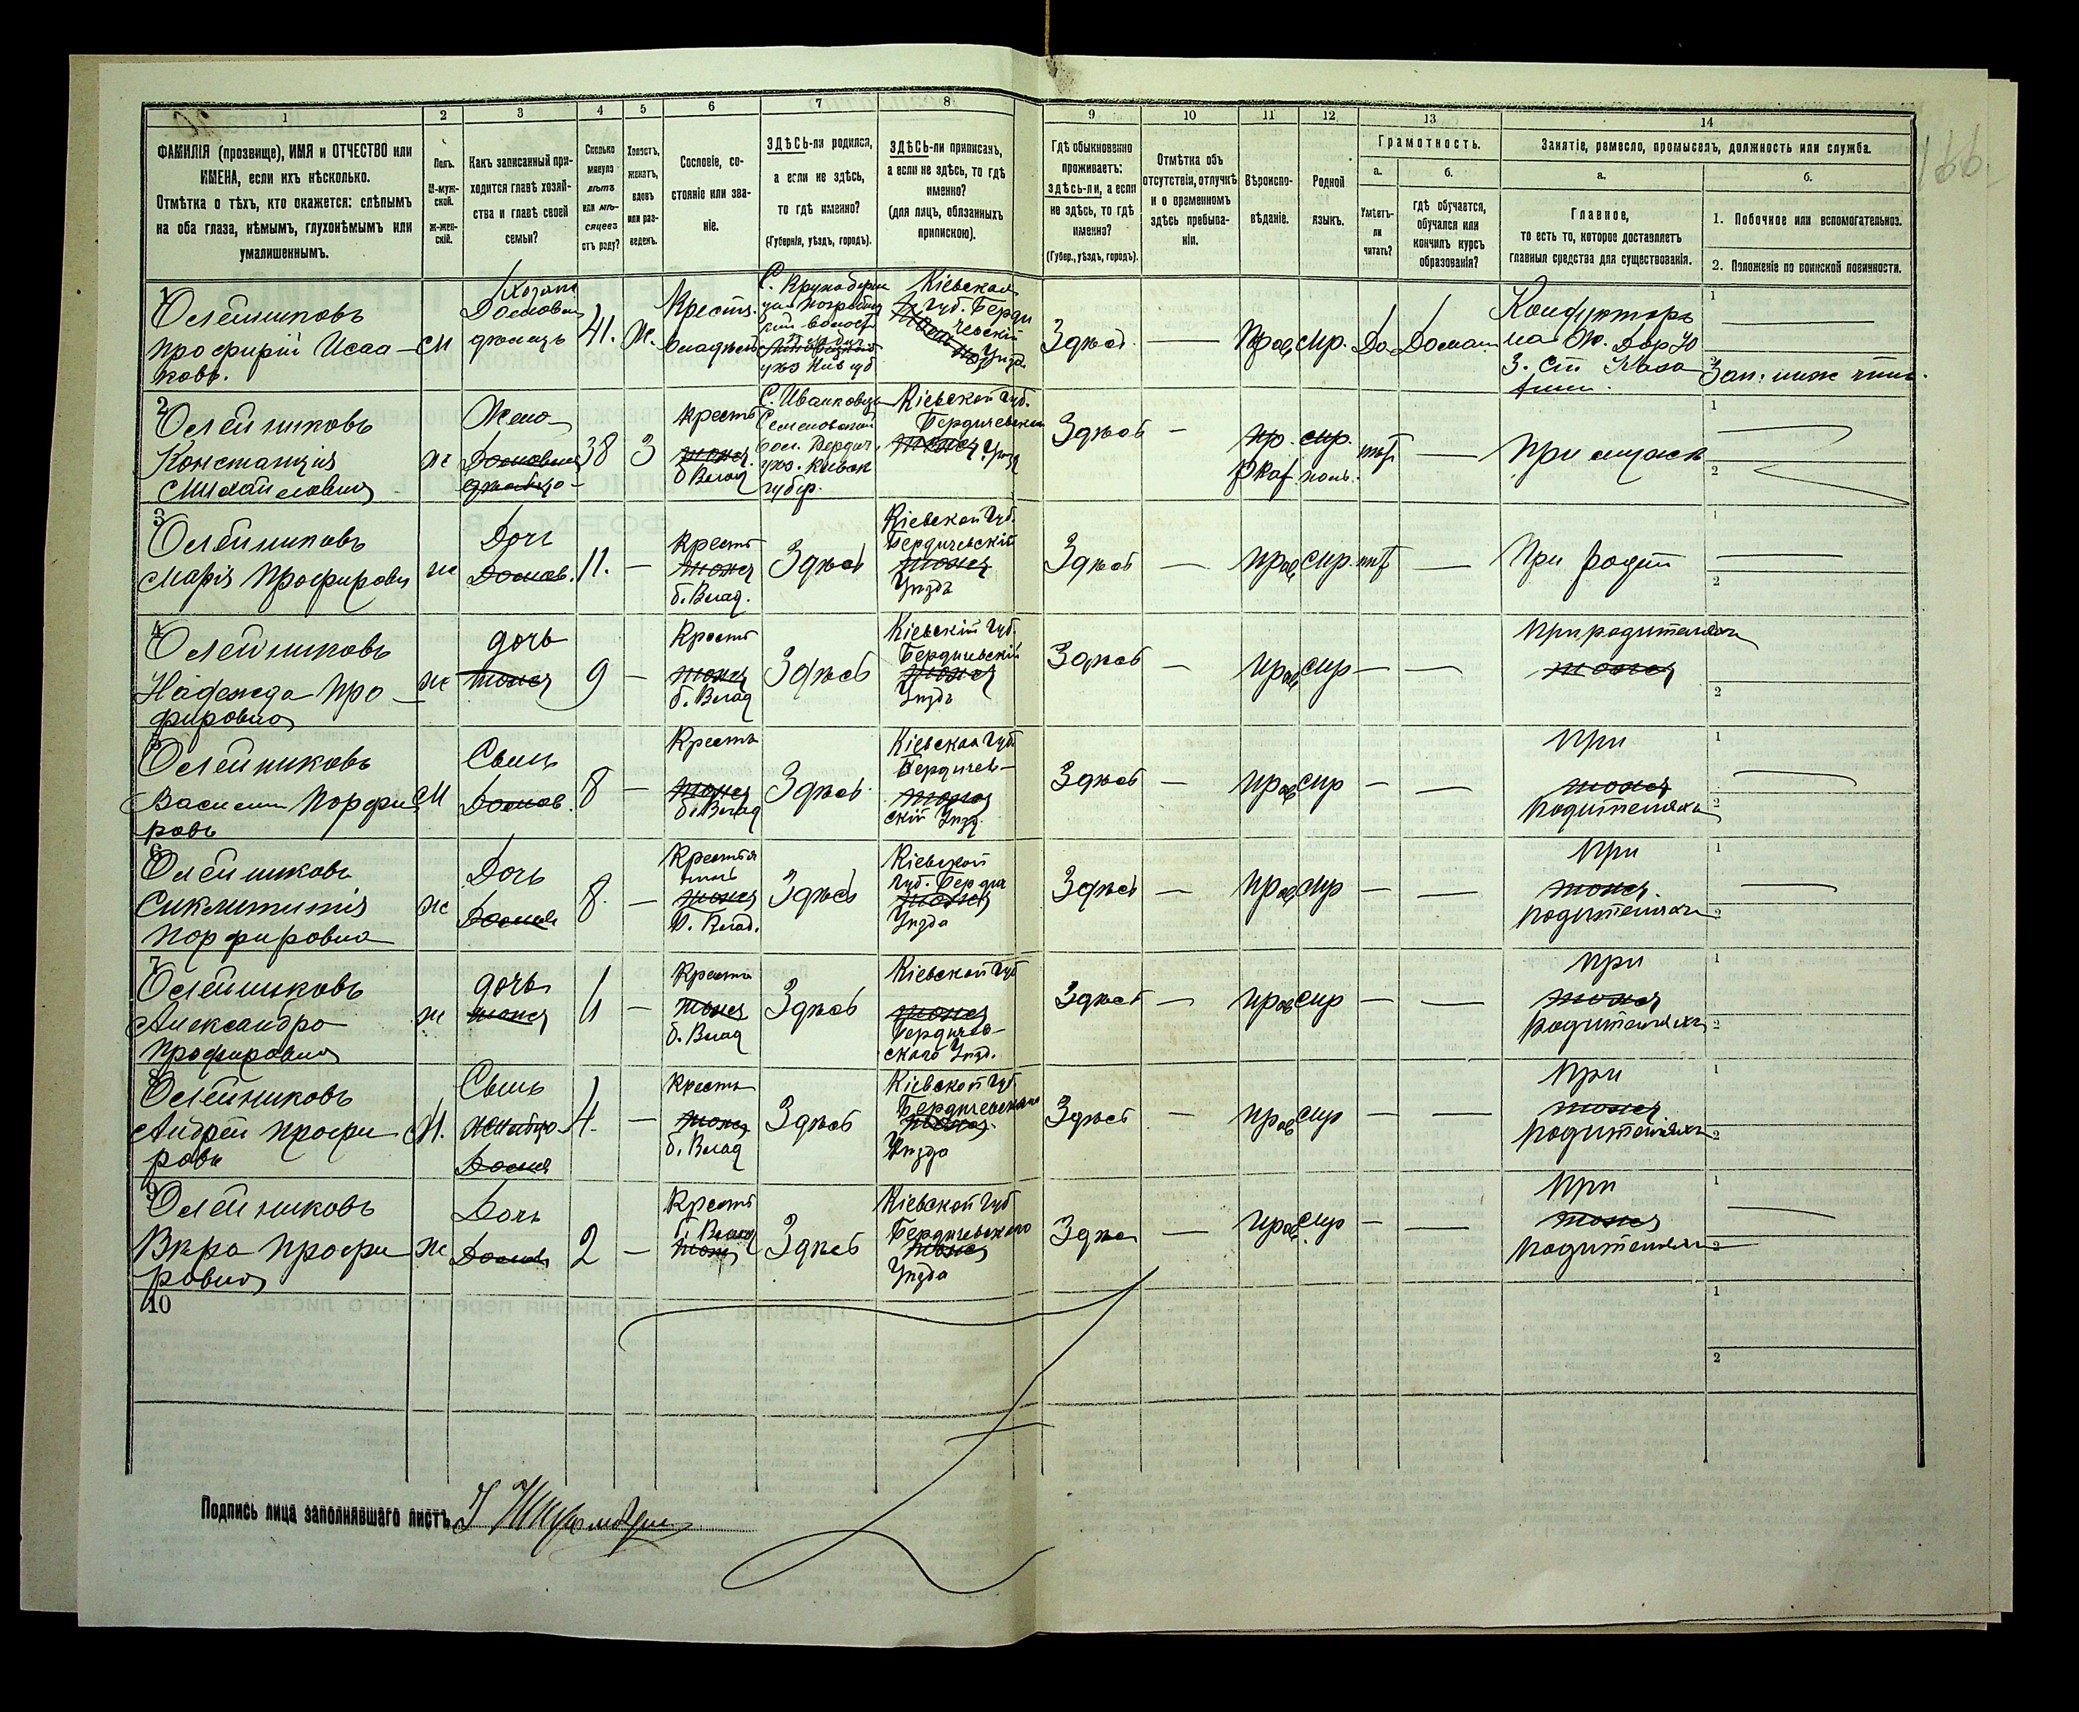 1 2 3 4 5 6 7 8 9 10 11 12 13 14
ФАМИЛІЯ (прозвище), ИМЯ и ОТЧЕСТВО или
ИМЕНА, если ихъ нѣсколько.
Отмѣтка о тѣхъ, кто окажется: слѣпымъ
на оба глаза, нѣмымъ, глухонѣмымъ или
умалишеннымъ.
Полъ.
М-муж-
ской.
Ж-жен-
скій.
Какъ записанный при-
ходится главѣ хозяй-
ства и главѣ своей
семьи?
Сколько
минуло
лѣтъ
или мѣ-
сяцевъ
отъ роду?
Холостъ,
женатъ,
вдовъ
или раз-
веденъ.
Сословіе, со-
стояніе или зва-
ніе.
ЗДѢСЬ-ли родился,
а если не здѣсь,
то гдѣ именно?
(Губернія, уѣздъ, городъ).
ЗДѢСЬ-ли приписанъ,
а если не здѣсь, то гдѣ
именно?
(для лицъ, обязанныхъ
припискою).
Гдѣ обыкновенно
проживаетъ:
здѣсь-ли, а если
не здѣсь, то гдѣ
именно?
(Губер., уѣздъ, городъ).
Отмѣтка объ
отсутствіи, отлучкѣ
и о временномъ
здѣсь пребыва-
ніи.
Вѣроиспо-
вѣданіе.
Родной
языкъ.
Грамотность.
а.
Умѣетъ-
ли
читать?
б.
гдѣ обучается,
обучался или
кончилъ курсъ
образованія?
Занятіе, ремесло, промыселъ, должность или служба.
а.
Главное,
то есть то, которое доставляетъ
главныя средства для существованія.
б.
1. Побочное или вспомогательное.
2. Положеніе по воинской повинности.
166
1
Олейниковъ
Профирій Исаа-
ковъ.
м
Хозяинъ
41.
Ж.
Крест.
Кіевская
Губ. Берди
чевскій
Уѣзд.
Здѣсь
Прав
Мр.
Да
Домаш
Кондукторъ
на Ж. Дор Ю
З. Ст Каза
тинъ.
1
2
2
Олейниковъ
Констанція
Михайловна
ж
Жена
38
З
Крест
тоже
б Влад
С. Иванковцы
губер.
Кіевской Губ.
Бердичевскій
тоже Уѣзд
Здѣсь
пр.
Ркат
мр.
поль.
нѣт
При мужѣ
1
2
3
Олейниковъ
Марія Профировн
ж
Дочь
Домов.
11.
Крест
тоже
б. Влад.
Здѣсь
Кіевской Губ.
Бердичевскій
тоже
Уѣздъ
Здѣсь
прав
мр.
нѣт
При родит
1
2
4
Олейниковъ
Надежда Про-
фировна
ж
дочь
тоже
9
Крест
тоже
б. Влад
Здѣсь
Кіевскій Губ.
Бердичевскій
тоже
Уѣздъ
Здѣсь
прав
мр
При родителяхъ
тоже
2
5
Олейниковъ
Василій Порфи
ровъ
М
Сынъ
Домов.
8
Крестъ
тоже
б. Влад
Здѣсь
Кіевская Губ
Бердичев-
тоже
скій Уѣзд.
Здѣсь
прав
мр
При
тоже
родителяхъ
1
2
6
Олейниковъ
Синклитикія
Порфировна
ж
Дочь
8.
Крестья
тоже
б. Влад.
Здѣсь
Кіевской
Губ. Бердич
тоже
Уѣзда
Здѣсь
прав
мр
При
тоже.
родителяхъ
1
2
7
Олейниковъ
Александра
Профировна
ж
дочь
тоже
Крестъ
тоже
б. Влад
Здѣсь
Кіевской Губ
тоже
Бердичев-
скаго Уѣзд.
Здѣсь
прав
мр
При
тоже
родителяхъ
1
2
8
Олейниковъ
Андрей Профи
ровъ
М.
Сынъ
4.
Крестъ
тоже
б. Влад
Здѣсь
Кіевской Губ
Бердичевскаго
Уѣзда
Здѣсь
прав
мр
При
тоже.
родителяхъ
1
2
9
Олейниковъ
Вѣра Профи
ровна
ж
Дочь
2
Крест
б. Влад
тоже
Здѣсь
Кіевской Губ
Бердичевского
тоже
Уѣзда
Здѣс
прав
мр
При
тоже
родителяхъ
1
2
10
1
2
Подпись лица заполнявшаго листъ